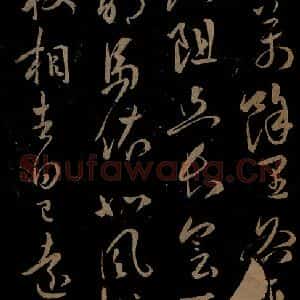 萬餘里各
阻且長會
胡馬依北風
枝相去日已遠
Shufawang.CN